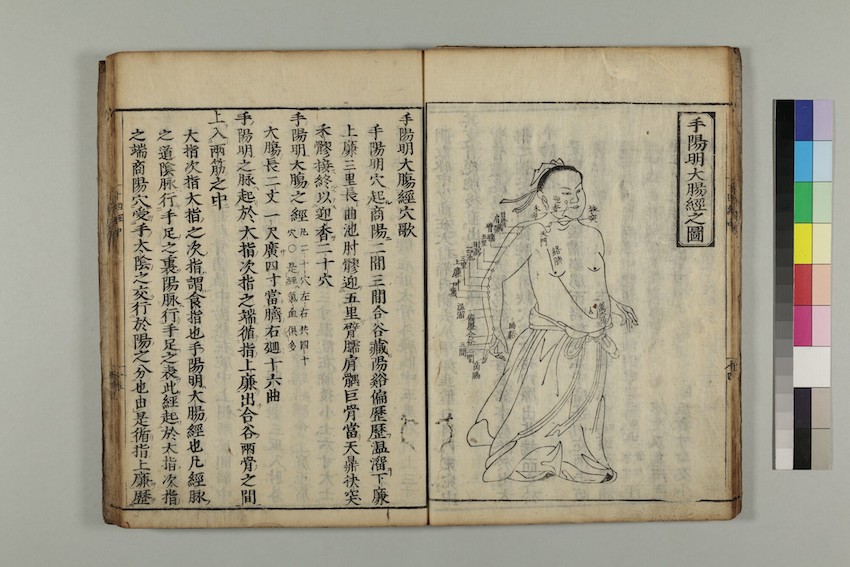 手陽明大腸經之圖
上廉
下廉
温溜
三間
手陽明大腸經穴歌
手陽明穴起商陽二間三間合谷藏陽谿偏歷歷温溜下廉
上廉三里長曲池肘髎迎五里臂臑肩髃巨骨當天鼎扶突
禾髎接終以迎香二十穴
手陽明大腸之經 凡二十穴左右共四十
穴〇是經氣血俱多
大腸長二丈一尺廣四寸當臍右廻十六曲
手陽明之脉起於大指次指之端循指上廉出合谷兩骨之間
上入兩筋之中
大指次指大指之次指謂食指也手陽明大腸經也凡經脉
之道陰脉行手足之裏陽脉行手足之表此經起於大指次指
之端商陽穴受手太陰之交行於陽之分也由是循指上廉歷